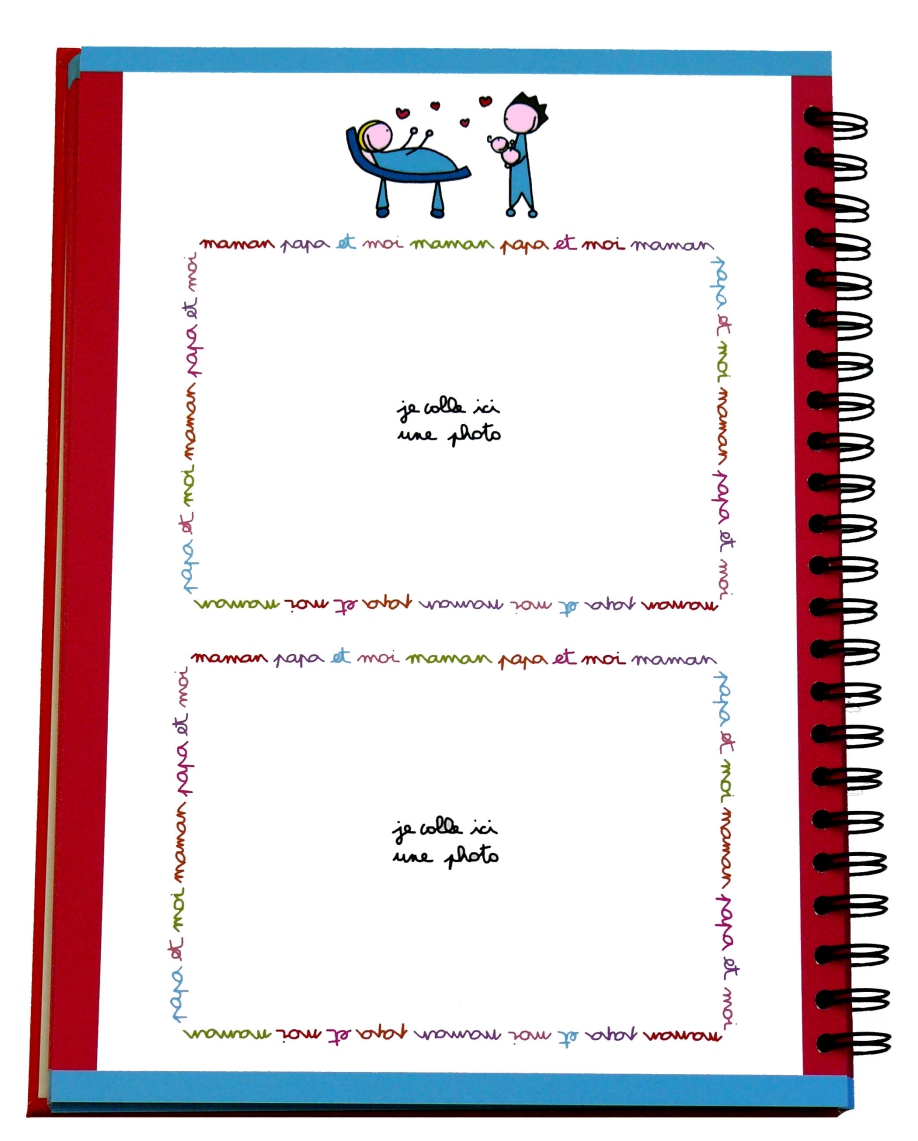 maman papa et moi maman papa et moi maman
papa et moi maman papa et moi
maman papa et moi maman papa et moi maman
papa et moi maman papa et moi
je colle ici
une photo
maman papa et moi maman papa et moi maman
papa et moi maman papa et moi
maman papa et moi maman papa et moi maman
papa et moi maman papa et moi
je colle ici
une photo